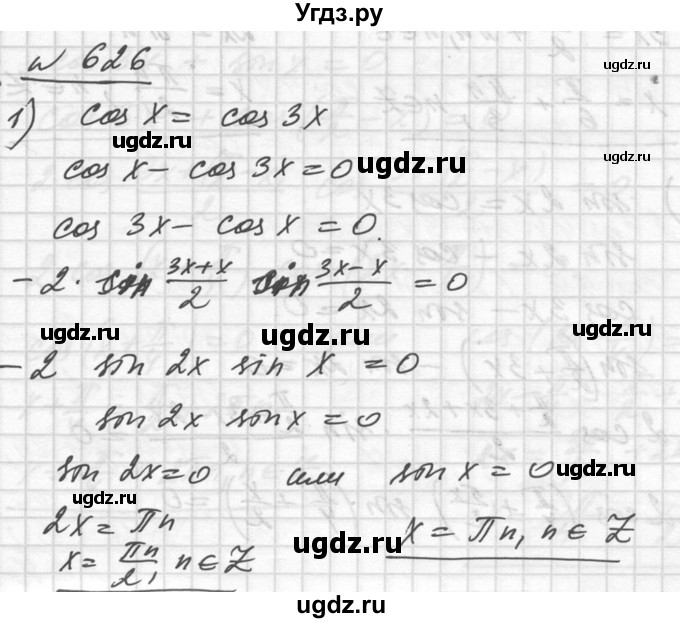 Угдз.ру
ugdz.ru
№ 626
1) cos x = cos 3x
ugdz.ru
ugdz.ru
ugdz.ru
cos x - cos 3x = 0
cos 3x - cos x = 0.
-2 · sin (3x+x)/2 sin (3x-x)/2 = 0
ugdz.ru ugdz.ru ugdz.ru
-2 sin 2x sin x = 0
sin 2x sin x = 0
sin 2x = 0 или sin x = 0
ugdz.ru
ugdz.ru
2x = Пn
x = Пn/2, n ∈ Z
x = Пn, n ∈ Z
ugdz.ru
ugdz.ru
ugdz.ru